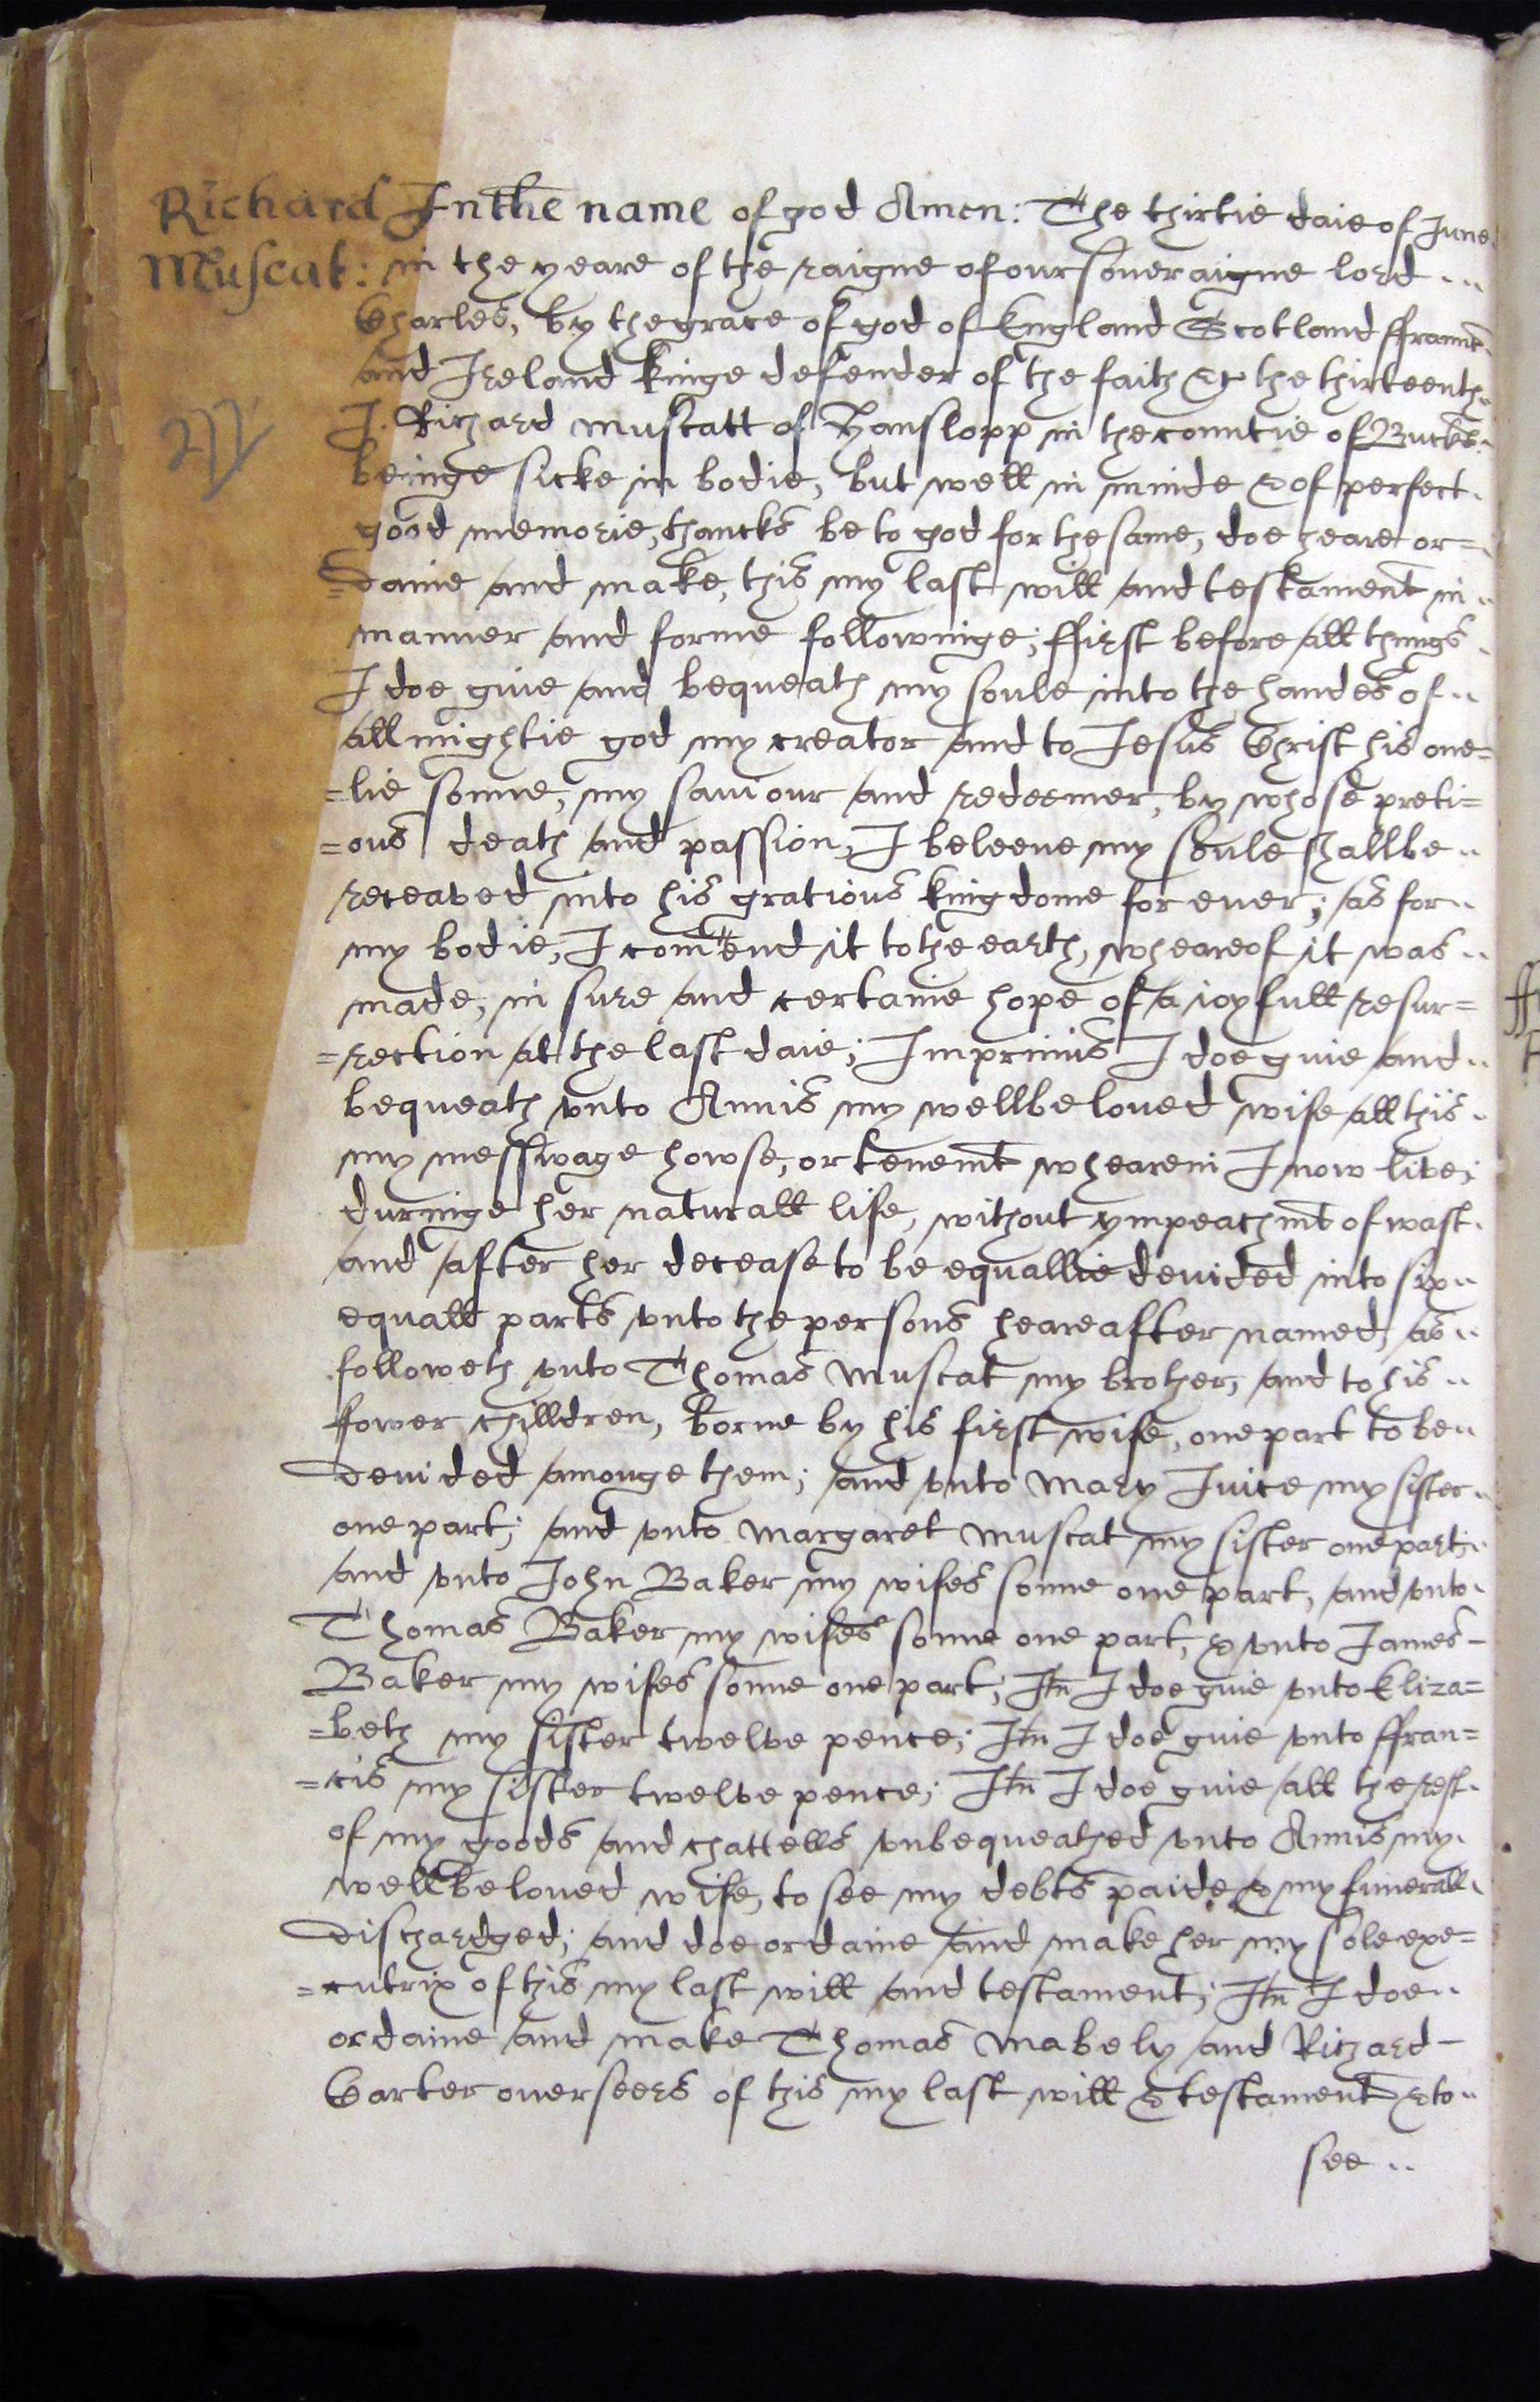 Richard
Muscat:
In the name of god Amen: The thirtie daie of June
in the yeare of the raigne of our soueraigne lord ..
Charles, by the grace of god of England Scotland ffraunc
and Ireland kinge defender of the faith &c the thirteenth
I. Richard muscatt of Hanslopp in the countie of Bucks.
beinge sicke in bodie, but well in minde & of perfect.
good memorie, thancks be to god for the same, doe heare or=
=daine and make, this my last will and testament in ..
manner and forme followinge; ffirst before all things
I doe giue and bequeath my soule into the handes of ..
allmightie god my creator and to Jesus Christ his one=
=lie sonne, my saviour and redeemer, by whose preti=
=ous death and passion, I beleeue my soule shallbe ..
receaved into his gratious kingdome for euer; as for ..
my bodie, I com̃end it to the earth, wheareof it was ..
made, in sure and certaine hope of a ioyfull resur=
=rection at the last daie; Imprimis I doe giue and ..
bequeath vnto Annis my wellbeloued wife all this.
my messwage howse, or tenemt whearein I now live;
duringe her naturall life, without ympeachmt of wast.
and after her decease to be equallie deuided into six ..
equall parts vnto the persons heareafter named, as ..
followeth vnto Thomas Muscat my brother, and to his ..
fower chilldren, borne by his first wife, one part to be ..
deuided amonge them; and vnto Mary Juice my sister ..
one part; and vnto Margaret Muscat my sister one part;
and vnto John Baker my wifes sonne one part, and vnto
Thomas Baker my wifes sonne one part, & vnto James -
Baker my wifes sonne one part; Itm I doe giue vnto Eliza=
=beth my sister twelve pence; Itm I doe giue vnto ffran=
=cis my sister twelve pence; Itm I doe giue all the rest.
of my goods and chattells vnbequeathed vnto Annis my.
wellbeloued wife, to see my debts paide & my funerall.
dischardged; and doe ordaine and make her my sole exe=
=cutrix of this my last will and testament; Itm I doe ..
ordaine and make Thomas Mabely and Richard -
Carter ouerseers of this my last will & testament & to ..
see ..